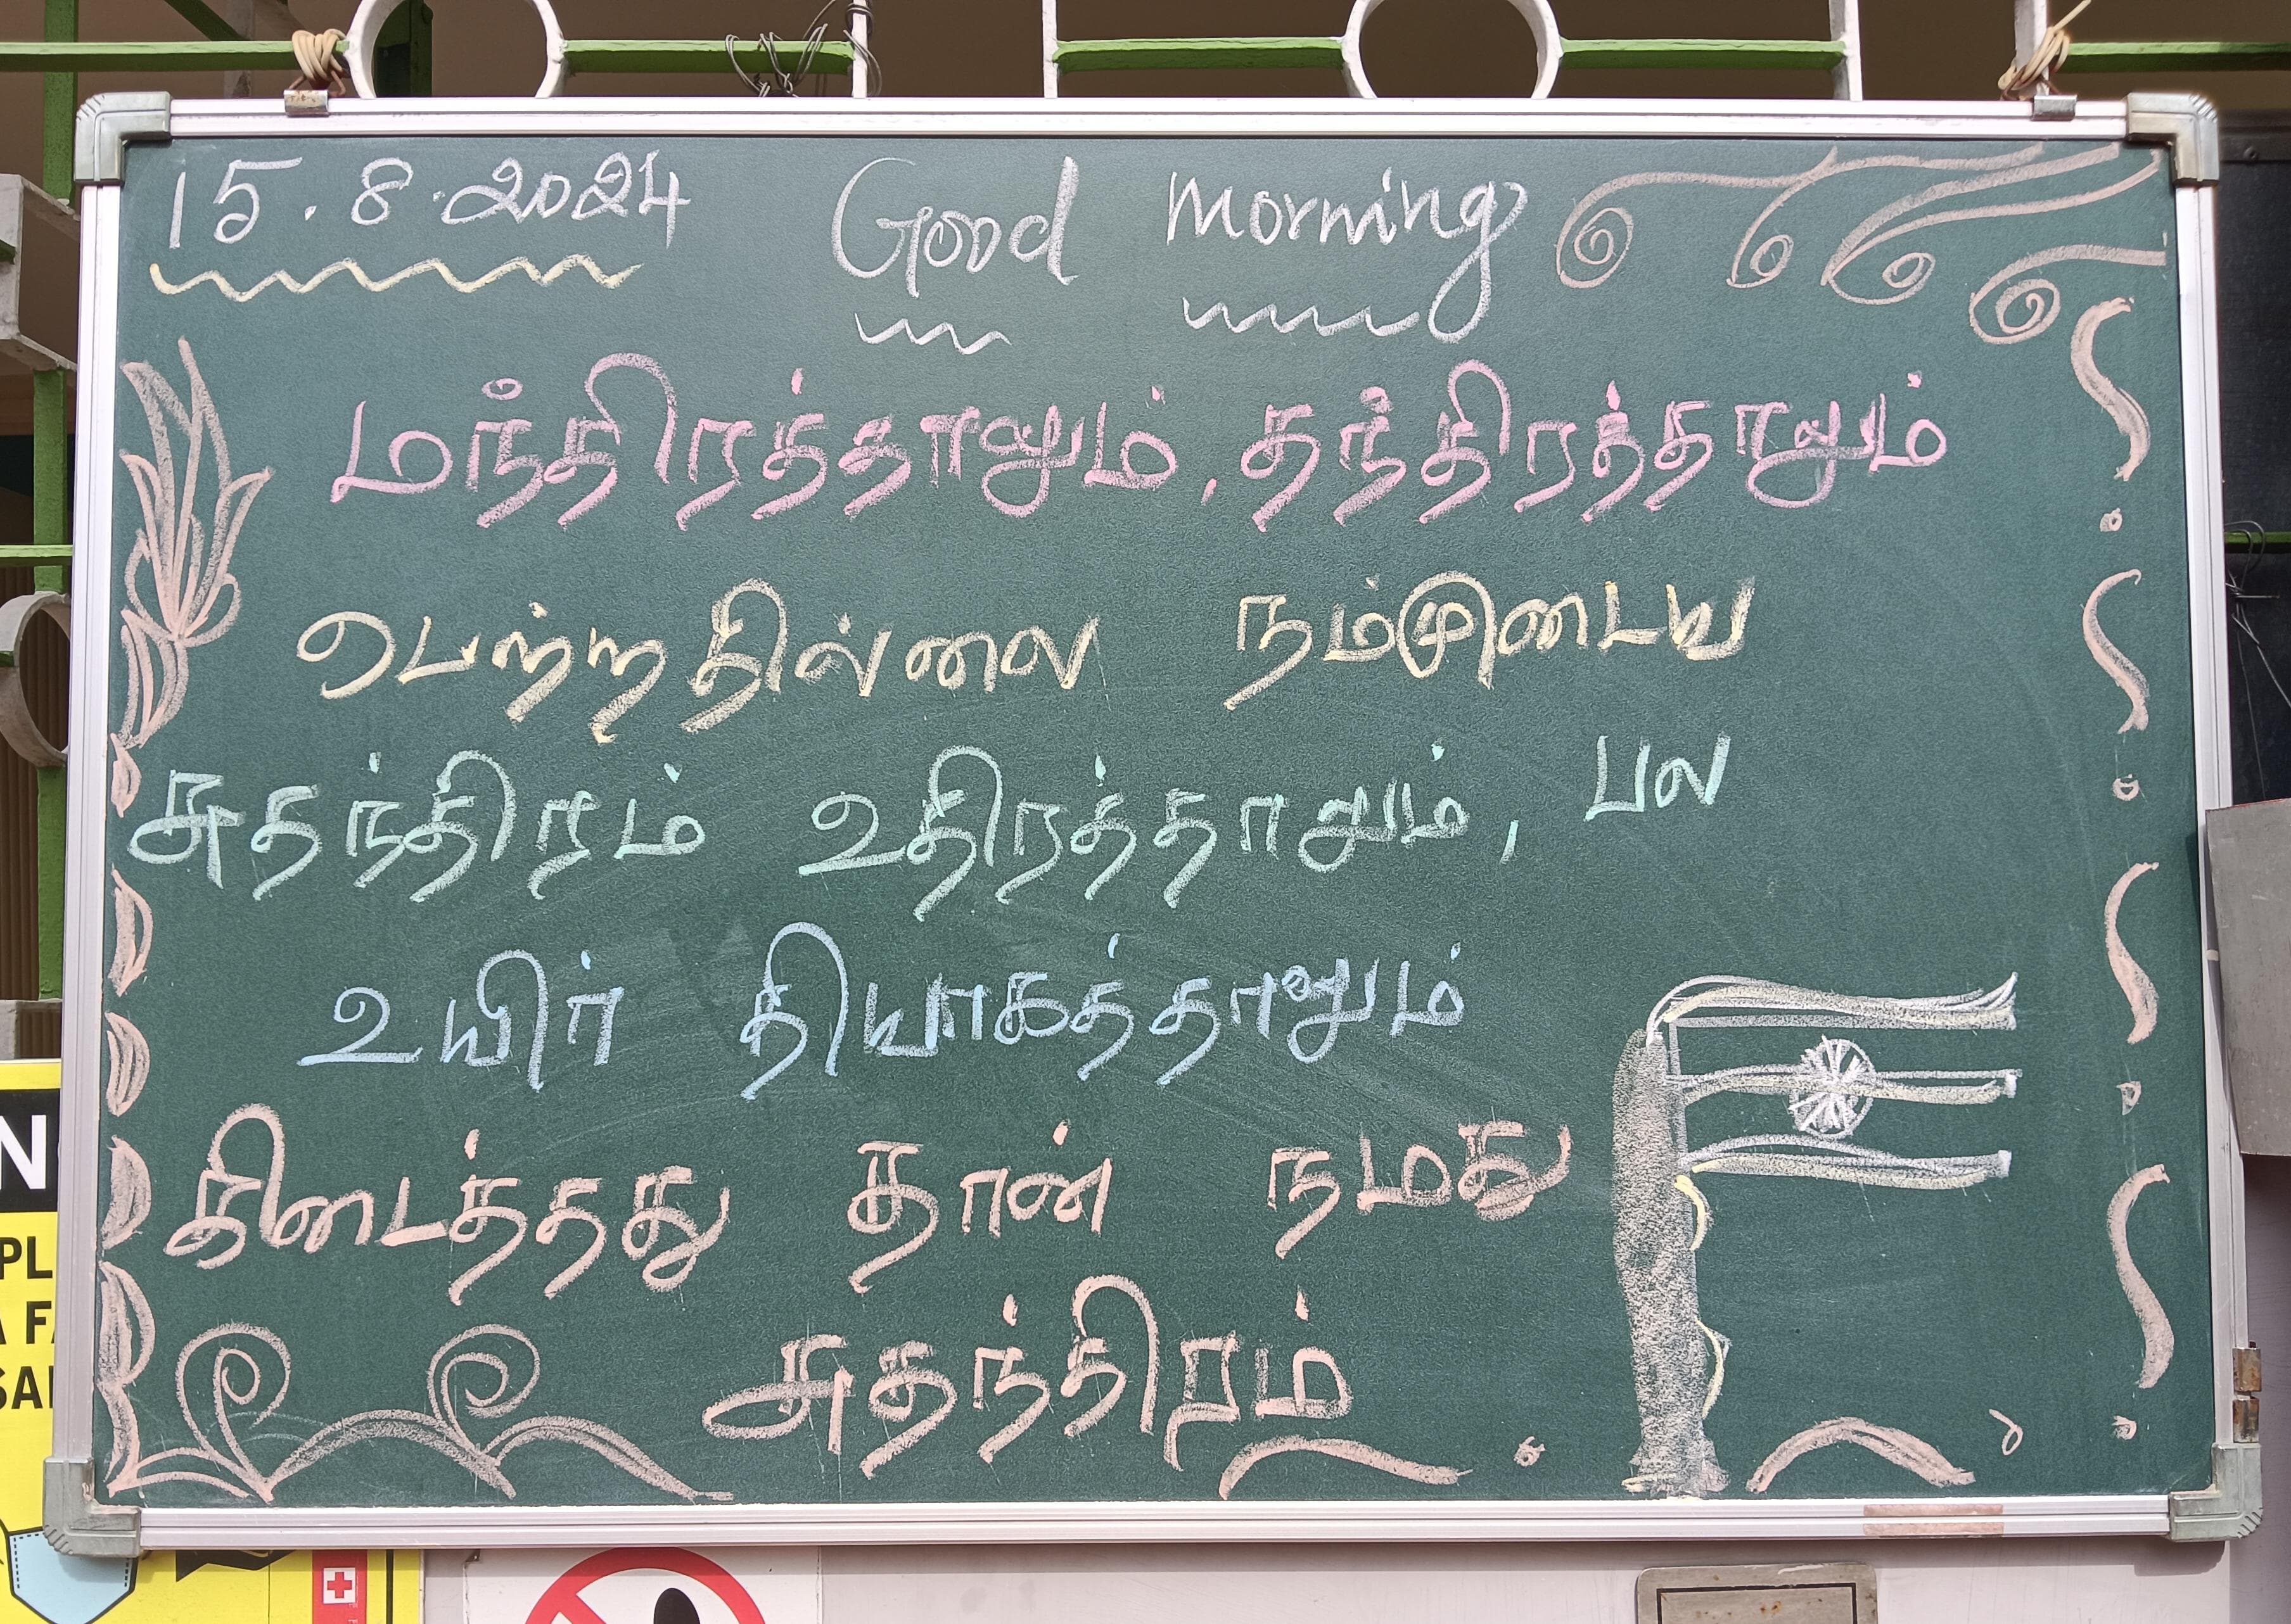 15.8.2024 Good morning
மந்திரத்தாலும், தந்திரத்தாலும்
பெற்றதில்லை நம்முடைய
சுதந்திரம் உதிரத்தாலும், பல
உயிர் தியாகத்தாலும்
கிடைத்தது தான் நமது
சுதந்திரம்